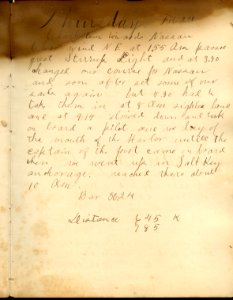 Thursday
towards Nassau
wind N.E. at 1.55 Am passed
great Stirrup Light and at 3.30
changed our course for Nassau
and soon after set some of our
sails again but 5.30 had to
take them in at 8 Am sighted land
and at 9.14 slowed down and took
on board a pilot and we lay off
the mouth of the Harbor untill the
captain of the port came on board
then we went up in Salt Key
anchorage. reached there about
10 Am.
Bar 30.24
Distance 645 K
185